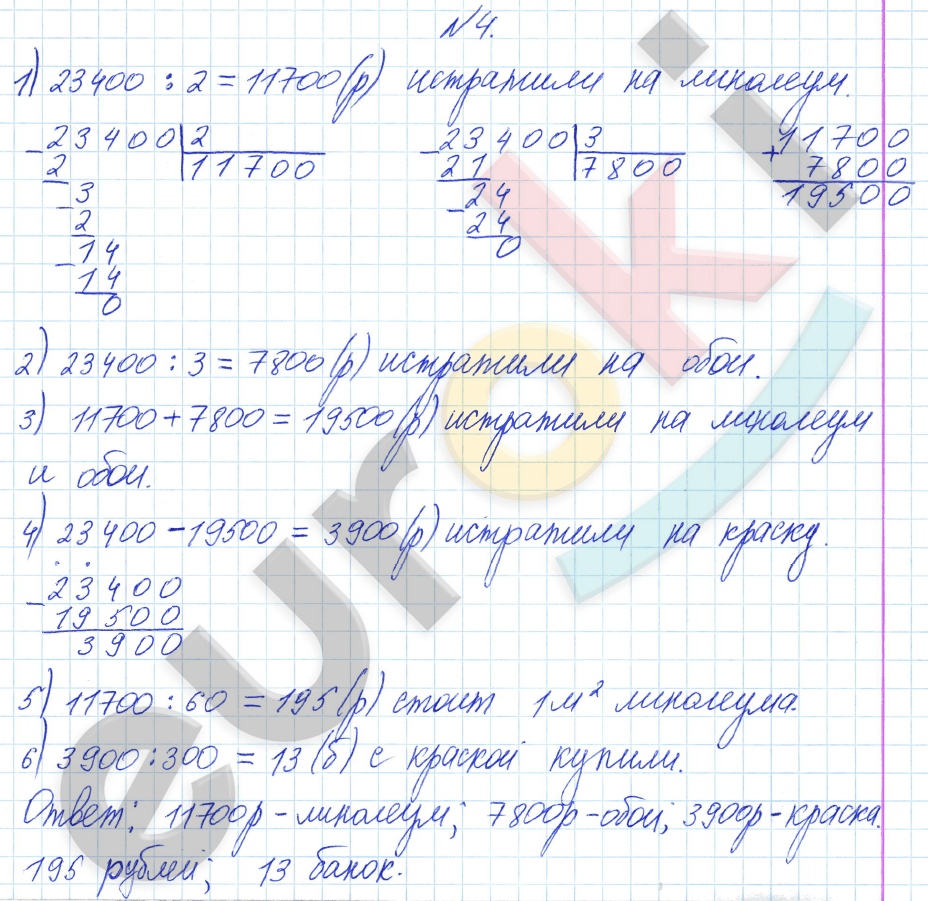 №4.
1) 23400 : 2 = 11700 (р) истратили на линолеум.
23400 2
2 11700
3
2
14
14
0
23400 3
21 7800
24
24
0
11700
+ 7800
19500
2) 23400 : 3 = 7800 (р) истратили на обои.
3) 11700 + 7800 = 19500 (р) истратили на линолеум
и обои.
4) 23400 - 19500 = 3900 (р) истратили на краску.
23400
19500
3900
5) 11700 : 60 = 195 (р) стоит 1м² линолеума.
6) 3900 : 300 = 13 (б) с краской купили.
Ответ: 11700р - линолеум; 7800р - обои; 3900р - краска.
195 рублей; 13 банок.
euroki